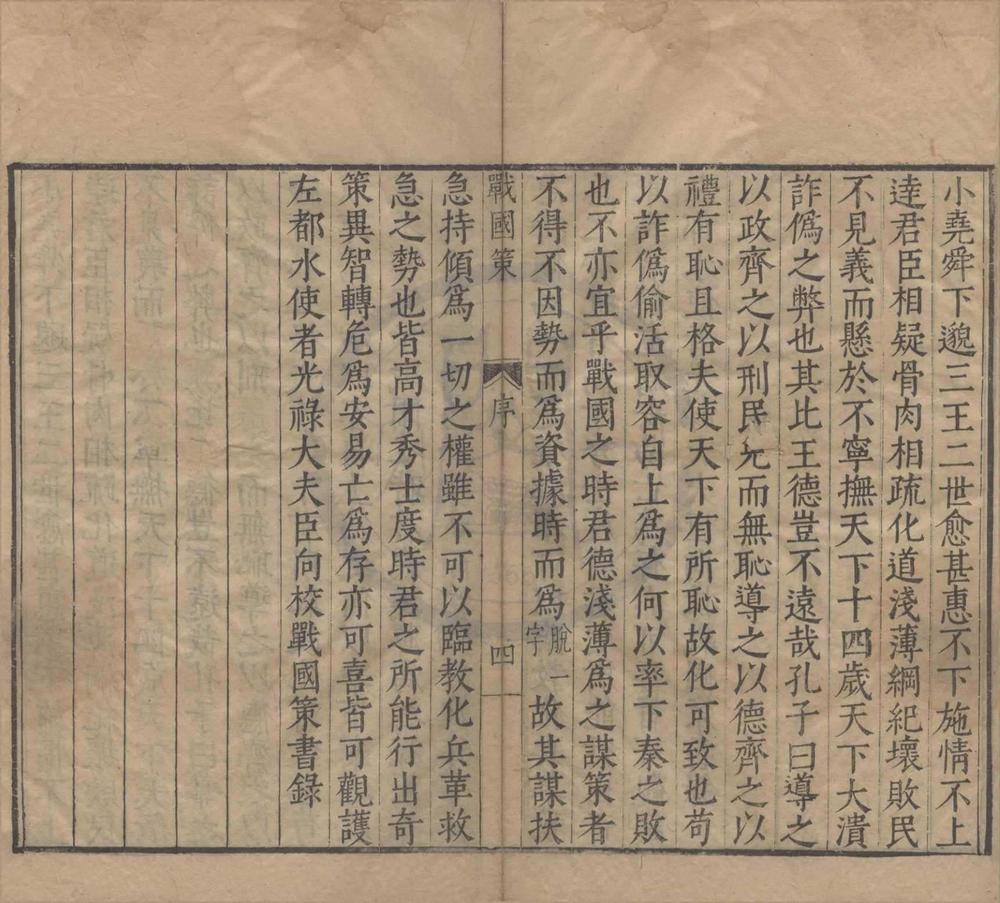 小堯舜下邈三王二世愈甚惠不下施情不上
逹君臣相疑骨肉相疏化道淺薄綱紀壞敗民
不見義而懸於不寧撫天下十四歲天下大潰
詐僞之弊也其比王德豈不遠哉孔子曰導之
以政齊之以刑民免而無恥導之以德齊之以
禮有恥且格夫使天下有所恥故化可致也苟
以詐僞偷活取容自上爲之何以率下秦之敗
也不亦宜乎戰國之時君德淺薄爲之謀策者
不得不因勢而爲資據時而爲脫一字故其謀扶
戰國策 序 四
急持傾爲一切之權雖不可以臨教化兵革救
急之勢也皆高才秀士度時君之所能行出奇
策異智轉危爲安易亡爲存亦可喜皆可觀護
左都水使者光祿大夫臣向校戰國策書錄